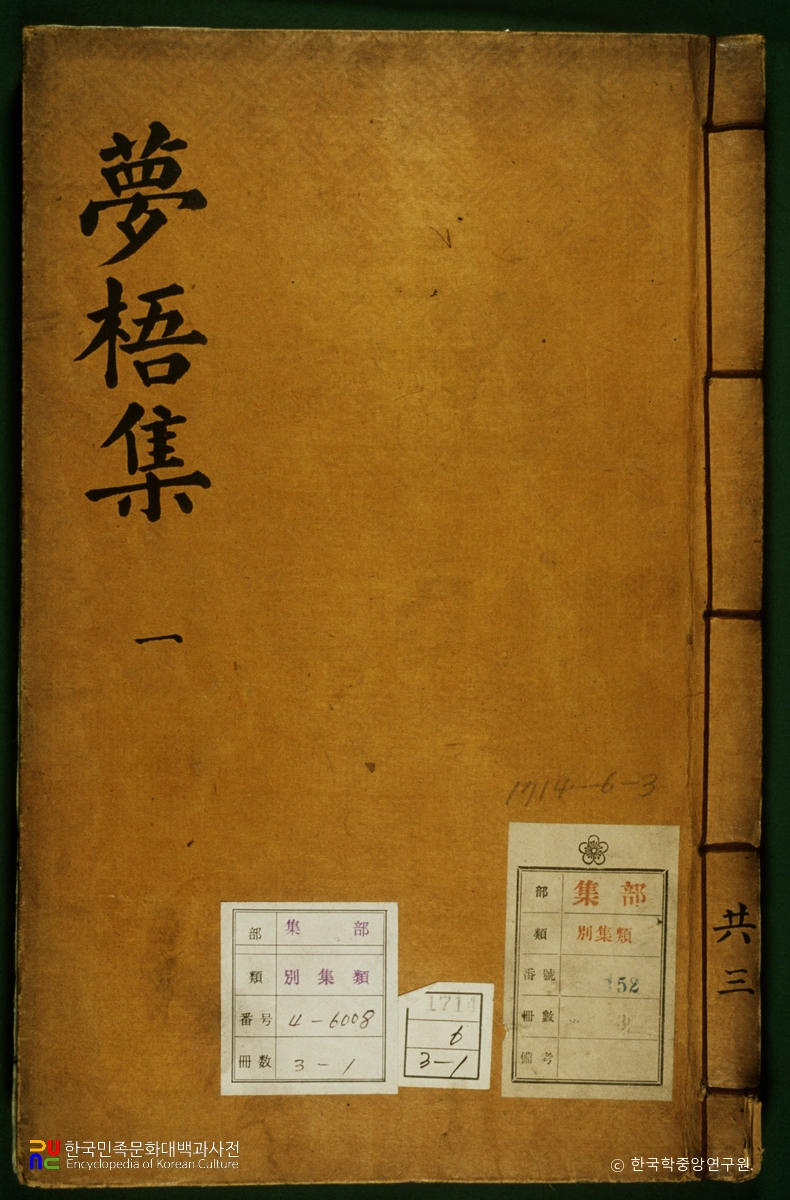 夢梧集
一
共三
1714-6-3
部 集部
類 別集類
番號 152
冊數 3
備考
部 集部
類 別集類
番号 4-6008
冊数 3-1
1714
6
3-1
한국민족문화대백과사전
Encyclopedia of Korean Culture
© 한국학중앙연구원